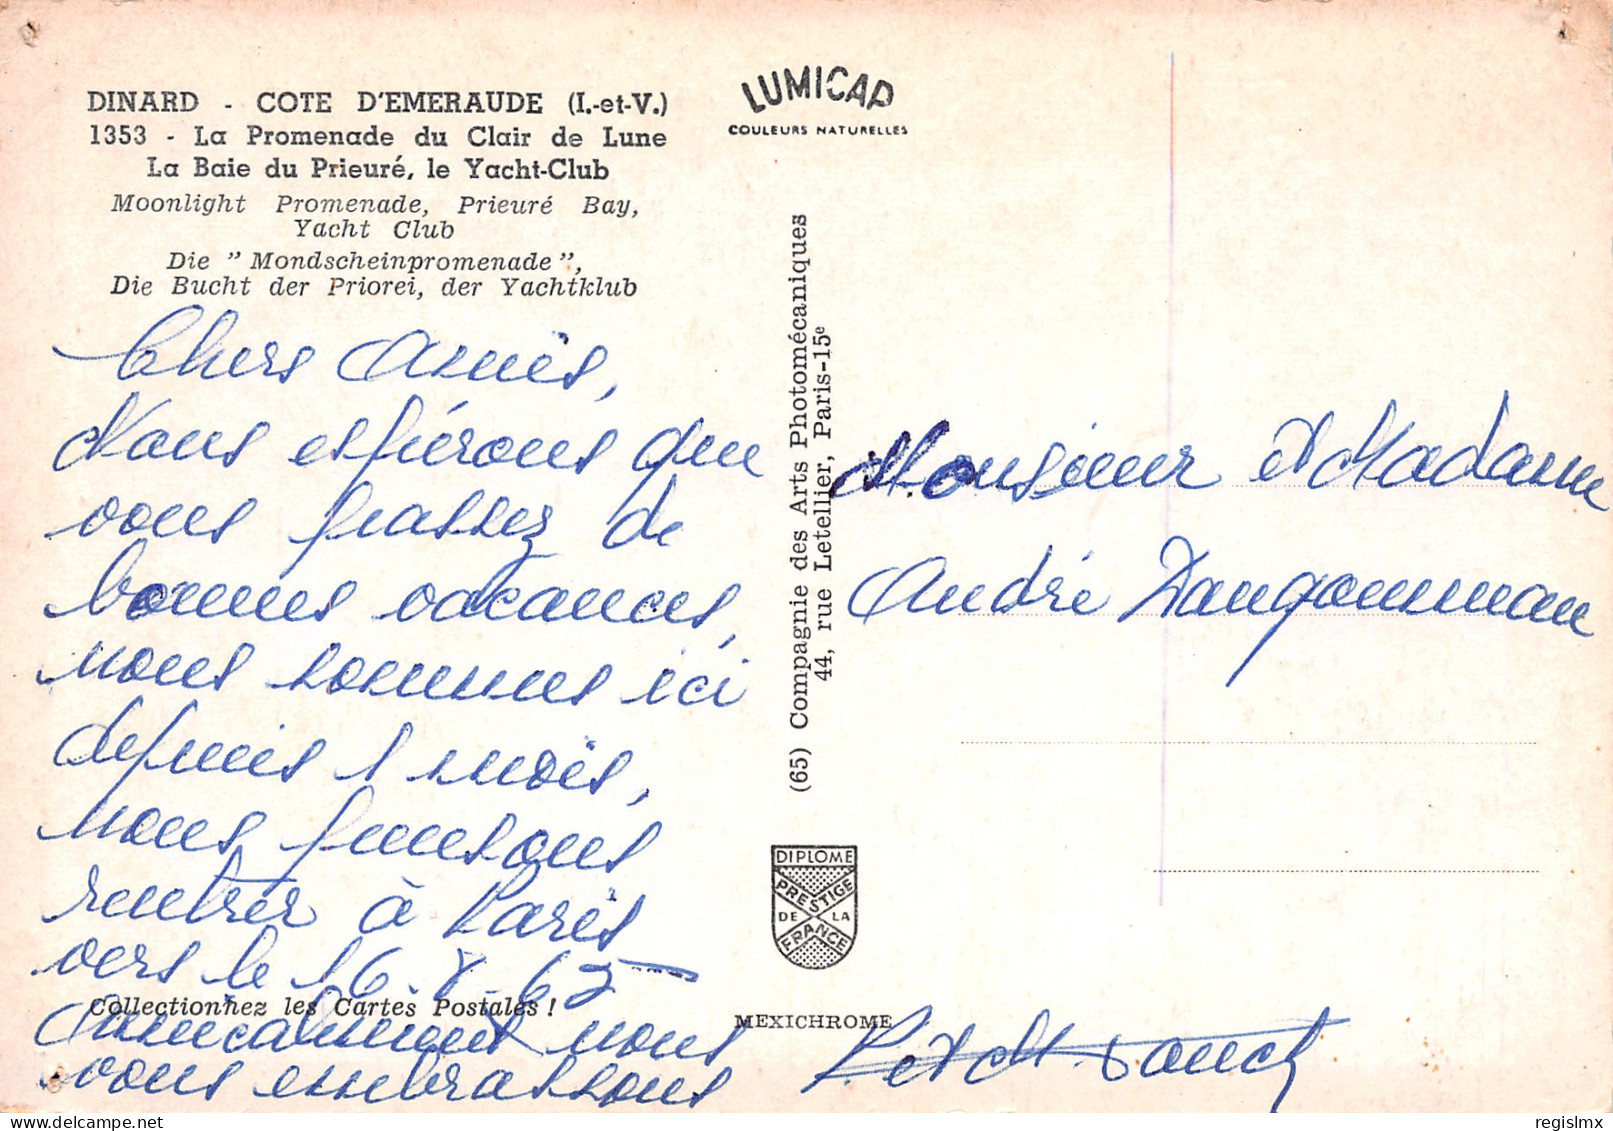 DINARD - COTE D'EMERAUDE (I.-et-V.)
1353 - La Promenade du Clair de Lune
La Baie du Prieuré, le Yacht-Club
Moonlight Promenade, Prieuré Bay,
Yacht Club
Die " Mondscheinpromenade ",
Die Bucht der Priorei, der Yachtklub
LUMICAP
COULEURS NATURELLES
Chers Amis,
Nous espérons que
vous passez de
bonnes vacances,
nous sommes ici
depuis 1 mois,
nous pensons
rentrer à Paris
vers le 16.8.65
Amicalement nous
vous embrassons
Collectionnez les Cartes Postales !
(65) Compagnie des Arts Photomécaniques
44, rue Letellier, Paris-15e
DIPLOME
PRESTIGE
DE LA
FRANCE
MEXICHROME
Monsieur et Madame
André
P. et M.
regislmx